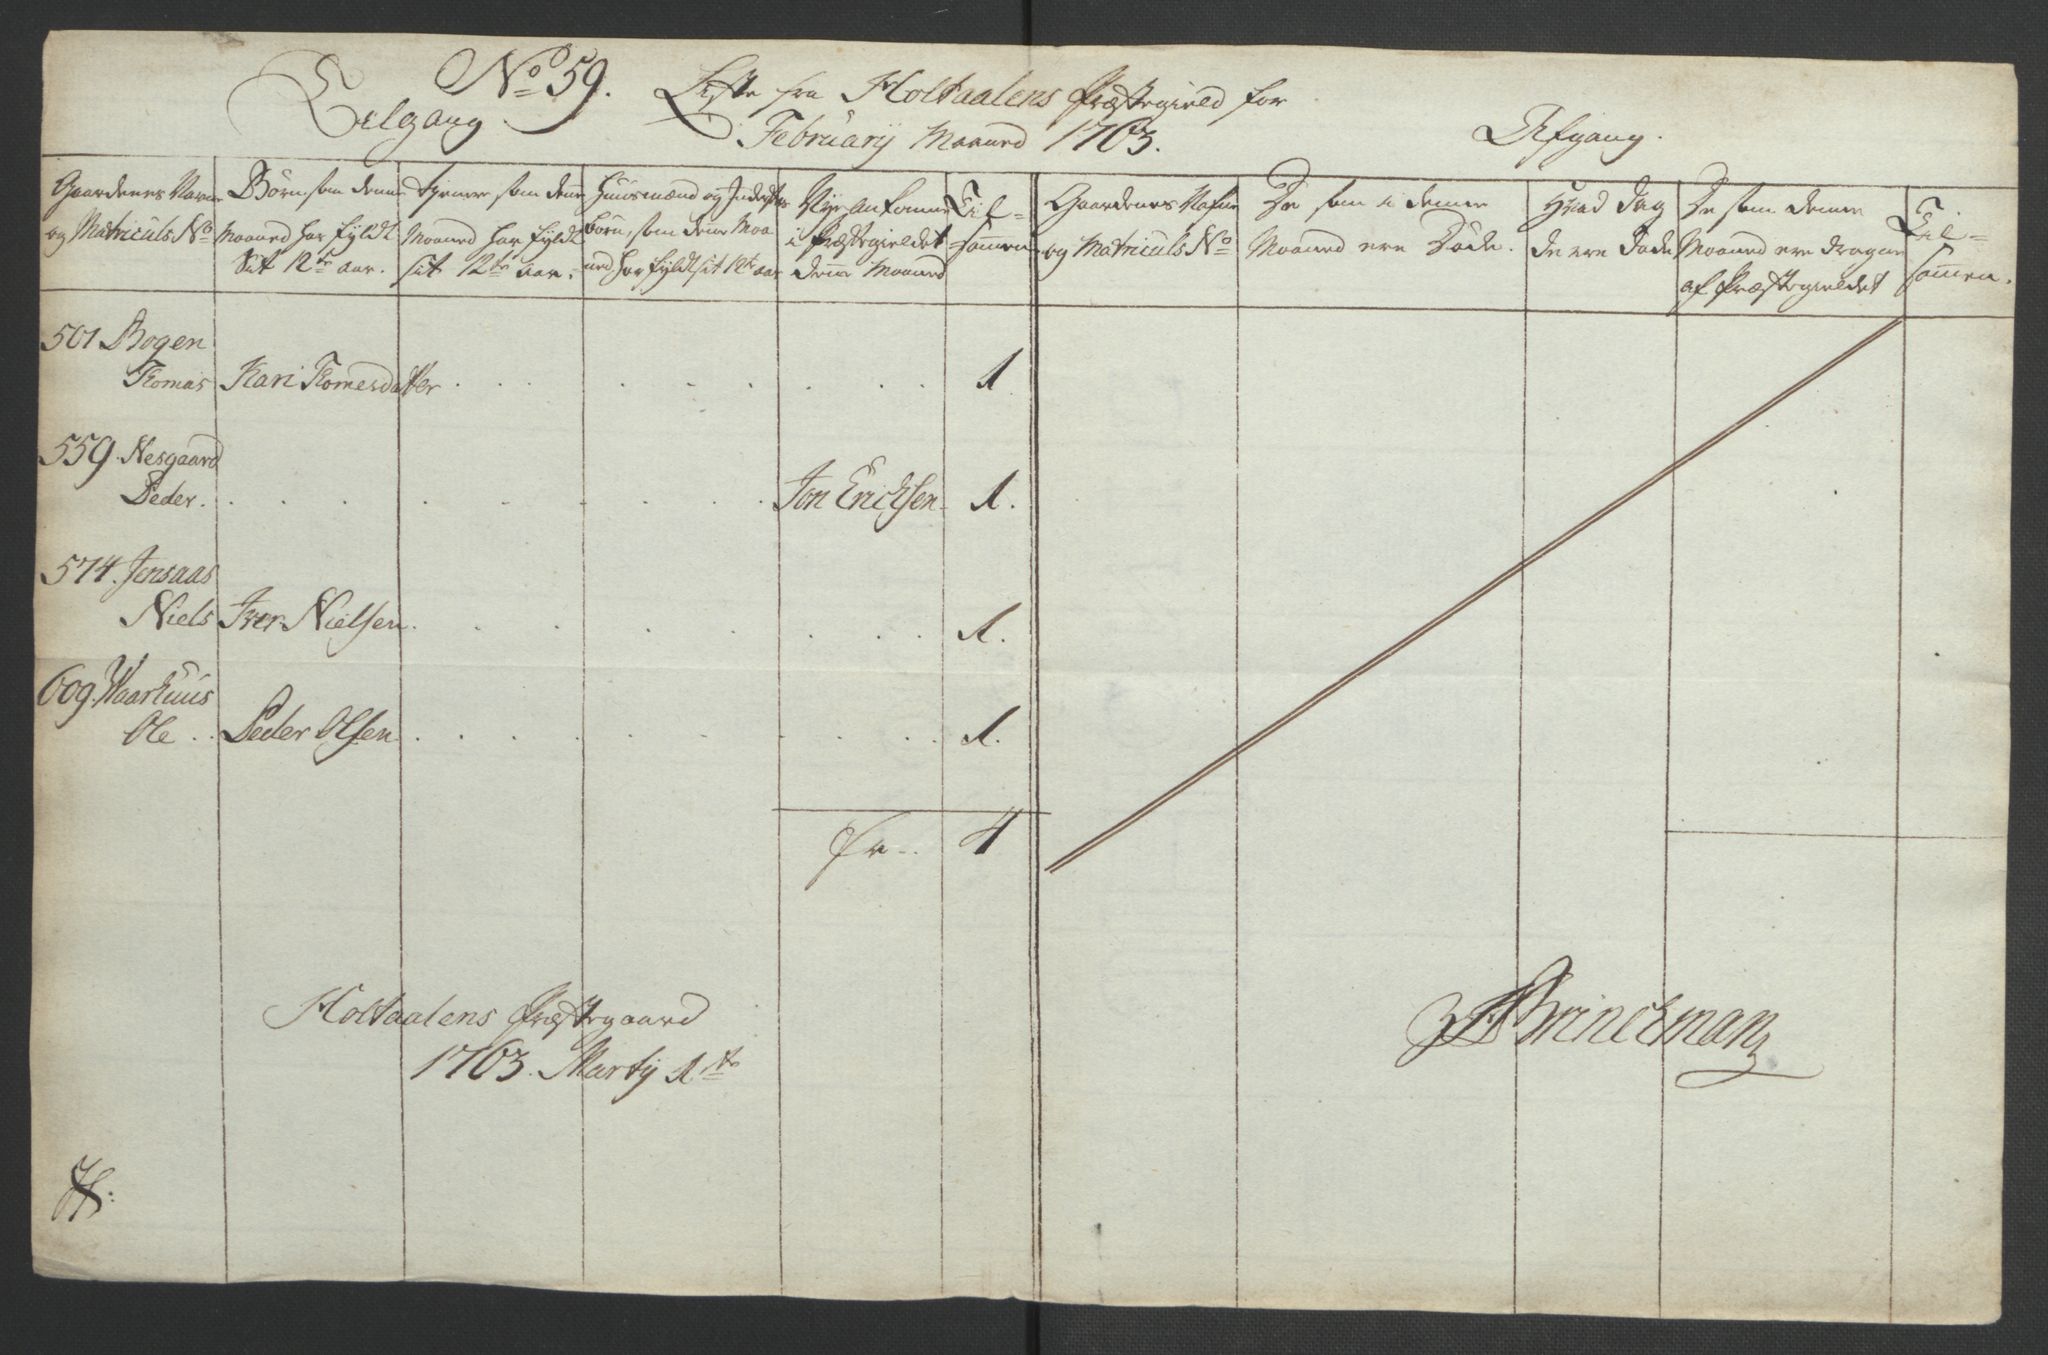 No 59. Liste fra Holtaalens Præstegield for
Tilgang Februarij Maaned 1763. Afgang.
Gaardenes Navne
og Matriculs No
Børn, som denne
Maaned har fyldt
Sit 12te aar.
tjenere som denne
Maaned har fyldt
sit 12te aar.
Huusmænd og Inderstes
børn, som denne Maa
ned har fyldt sit 12te aar
Nye Ankomne
i Præstegieldet
denne Maaned
Til-
sammen
Gaardenes Nafne
og Matriculs No
De som i denne
Maaned ere Døde.
Hvad Dag
de ere Døde
De som denne
Maaned ere dragne
af Præstegieldet
Til-
sammen.
501 Bogen
Thomas Kari Thomesdatter 1
559. Nesgaard
Peder. Jon Ericksen 1.
574. Jensaas
Niels Iver Nielsen. 1.
609. Waarhuus
Ole Peder Olsen 1.
4
Holtaalens Præstegaard
1763. Martij 1ste
Brinckman